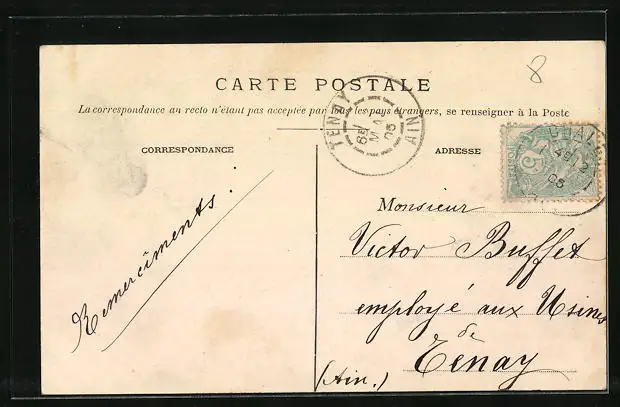 8
CARTE POSTALE
La correspondance au recto n'étant pas acceptée par tous les pays étrangers, se renseigner à la Poste
TENAY AIN
MA
05
CORRESPONDANCE
ADRESSE
5
05
Remercîments.
Monsieur
Victor Buffet
employé aux Usines
de
Tenay
(Ain.)